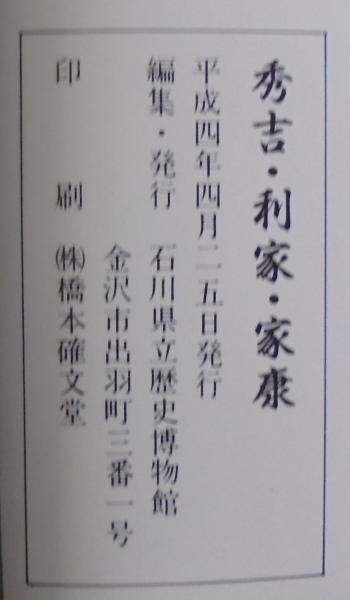 秀吉・利家・家康
平成四年四月二五日発行
編集・発行 石川県立歴史博物館
金沢市出羽町三番一号
印刷 ㈱橋本確文堂